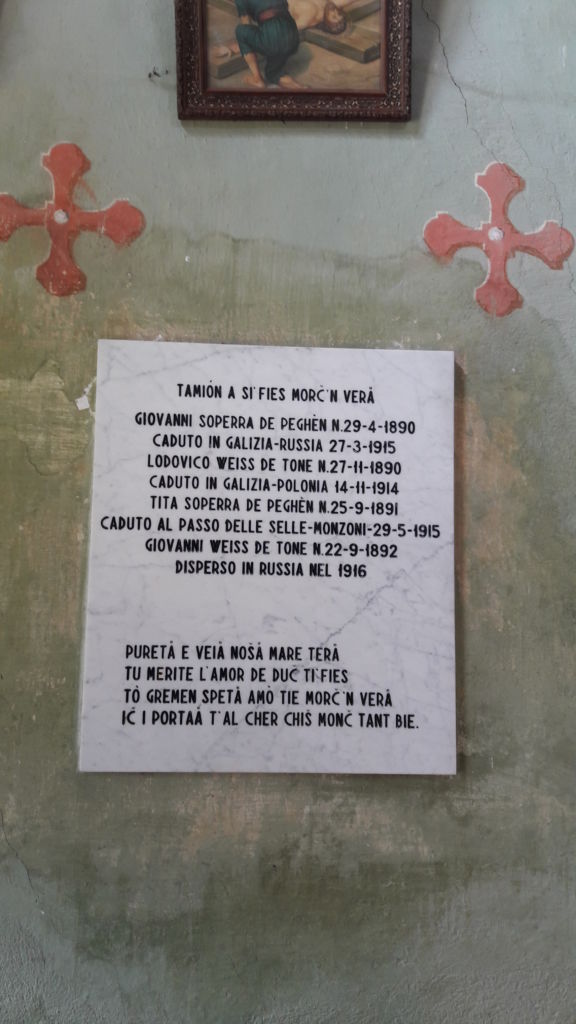 TAMIÓN A SI'FIES MORČ'N VERÀ
GIOVANNI SOPERRA DE PEGHÈN N.29-4-1890
CADUTO IN GALIZIA-RUSSIA 27-3-1915
LODOVICO WEISS DE TONE N.27-11-1890
CADUTO IN GALIZIA-POLONIA 14-11-1914
TITA SOPERRA DE PEGHÈN N.25-9-1891
CADUTO AL PASSO DELLE SELLE-MONZONI-29-5-1915
GIOVANNI WEISS DE TONE N.22-9-1892
DISPERSO IN RUSSIA NEL 1916
PURETÀ E VEIÀ NOŠÀ MARE TERÀ
TU MERITE L'AMOR DE DUČ TI'FIES
TÒ GREMEN SPETÀ AMÒ TIE MORČ'N VERÀ
IČ I PORTAÀ T'AL CHER CHIŠ MONČ TANT BIE.